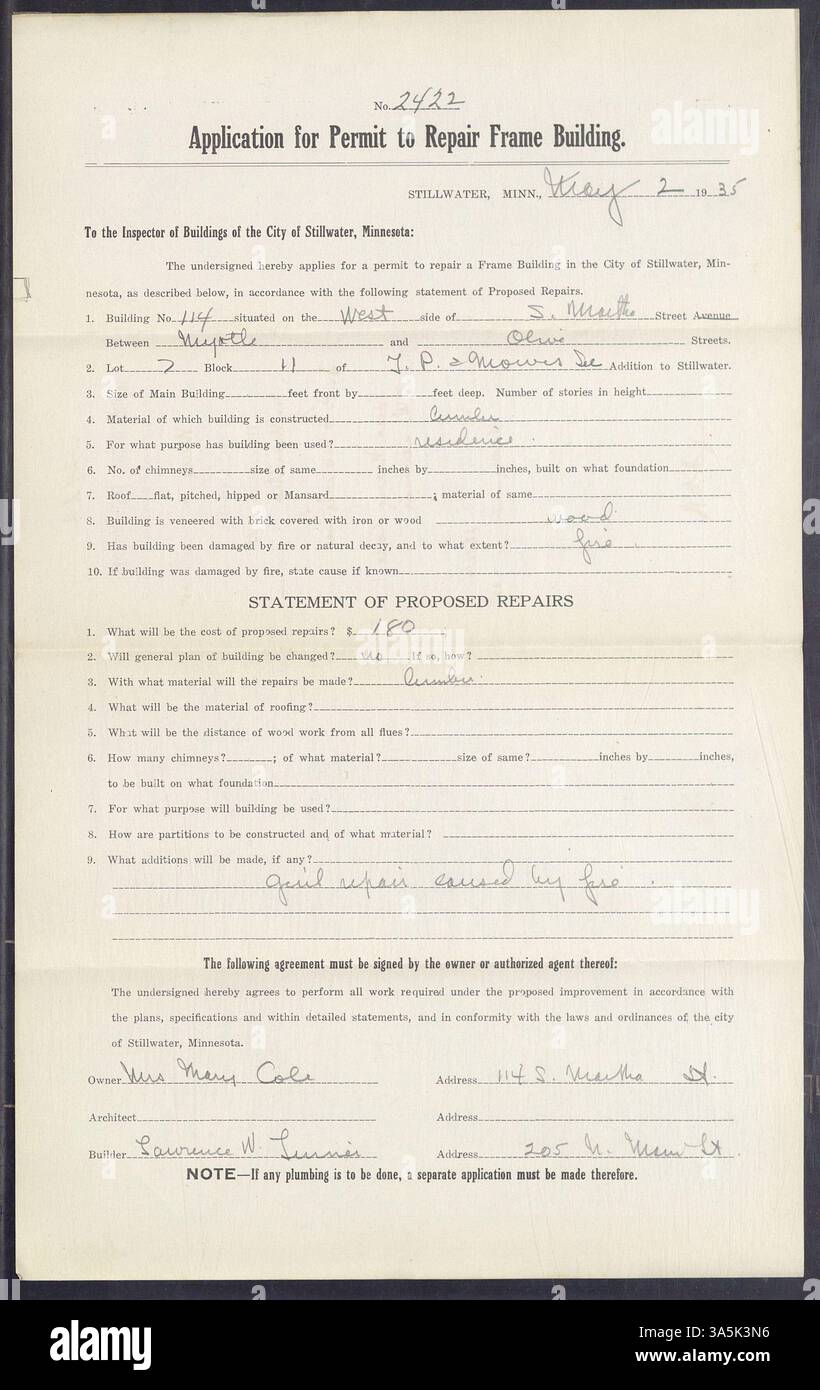 No. 2422
Application for Permit to Repair Frame Building.
STILLWATER, MINN., May 2 1935
To the Inspector of Buildings of the City of Stillwater, Minnesota:
The undersigned hereby applies for a permit to repair a Frame Building in the City of Stillwater, Min-
nesota, as described below, in accordance with the following statement of Proposed Repairs.
1. Building No. 114 situated on the West side of S. Martha Street Avenue
Between Myrtle and Olive Streets.
2. Lot 7 Block 11 of Addition to Stillwater.
3. Size of Main Building feet front by feet deep. Number of stories in height
4. Material of which building is constructed Lumber
5. For what purpose has building been used? residence.
6. No. of chimneys size of same inches by inches, built on what foundation
7. Roof flat, pitched, hipped or Mansard ; material of same
8. Building is veneered with brick covered with iron or wood wood
9. Has building been damaged by fire or natural decay, and to what extent? fire.
10. If building was damaged by fire, state cause if known
STATEMENT OF PROPOSED REPAIRS
1. What will be the cost of proposed repairs? $ 180
2. Will general plan of building be changed? no If so, how?
3. With what material will the repairs be made? Lumber.
4. What will be the material of roofing?
5. What will be the distance of wood work from all flues?
6. How many chimneys? ; of what material? size of same? inches by inches,
to be built on what foundation
7. For what purpose will building be used?
8. How are partitions to be constructed and of what material?
9. What additions will be made, if any?
Gen'l repair caused by fire.
The following agreement must be signed by the owner or authorized agent thereof:
The undersigned hereby agrees to perform all work required under the proposed improvement in accordance with
the plans, specifications and within detailed statements, and in conformity with the laws and ordinances of the city
of Stillwater, Minnesota.
Owner Mrs Mary Cole Address 114 S. Martha St.
Architect Address
Builder Lawrence W. Address 205 N. St.
NOTE—If any plumbing is to be done, a separate application must be made therefore.
alamy
Image ID: 3A5K3N6
www.alamy.com